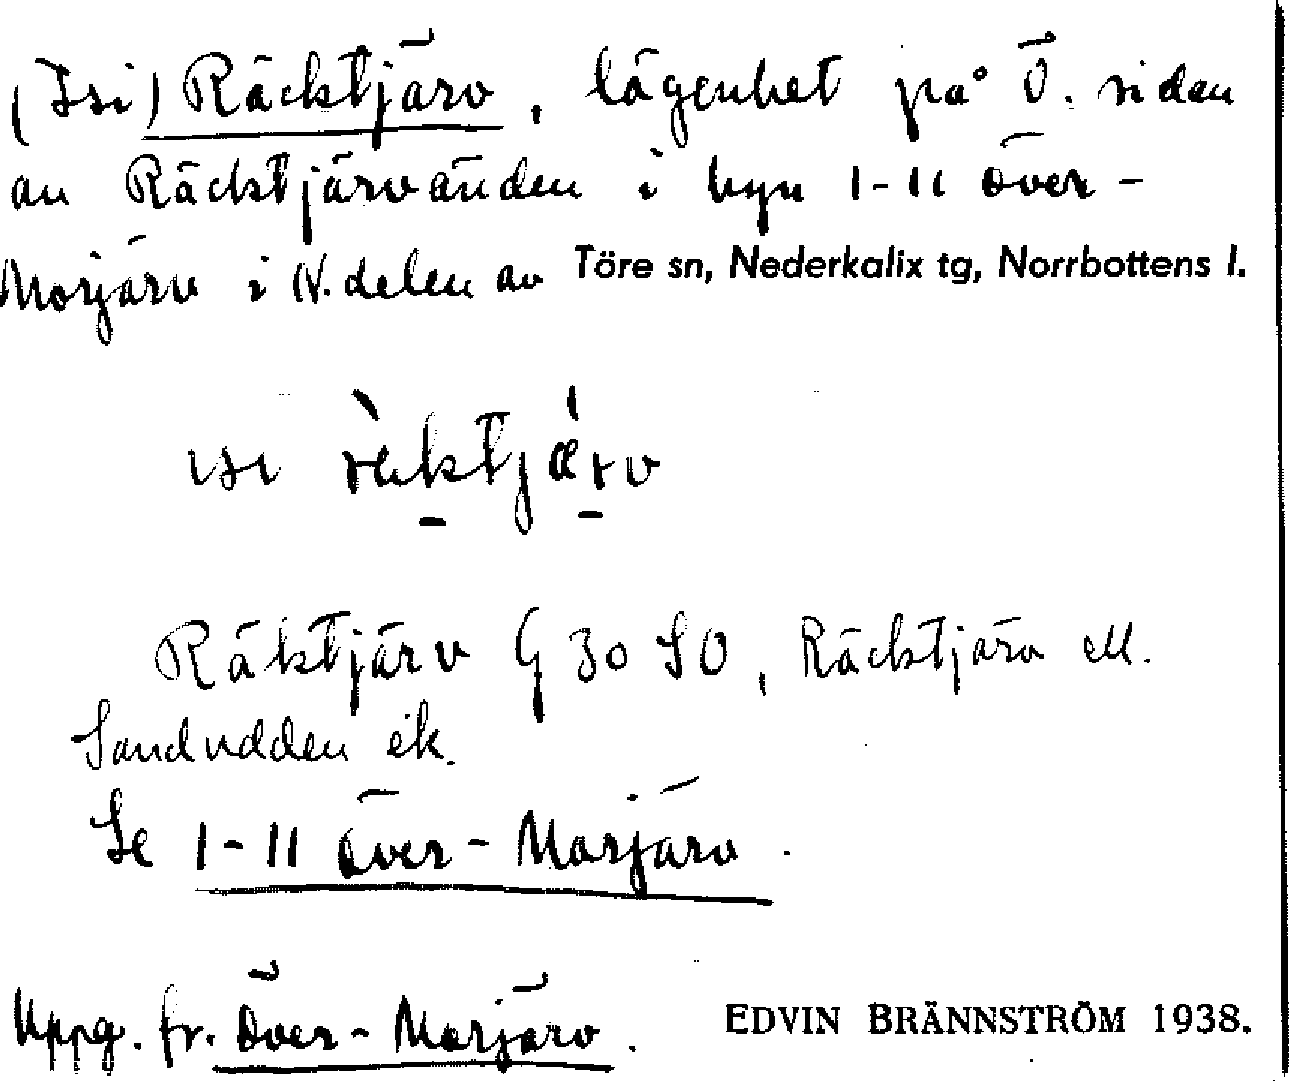 (Isi) Räcktjärv, lägenhet på Ö. sidan
av Räcktjärvanden i byn 1-11 Över-
Morjärv i N. delen av Töre sn, Nederkalix tg, Norrbottens l.
isi räktjærv
Räktjärv G 30 SO, Räcktjärv ell.
Sandudden ek.
Se 1-11 Över-Morjärv.
Uppg. fr. Över-Morjärv. EDVIN BRÄNNSTRÖM 1938.